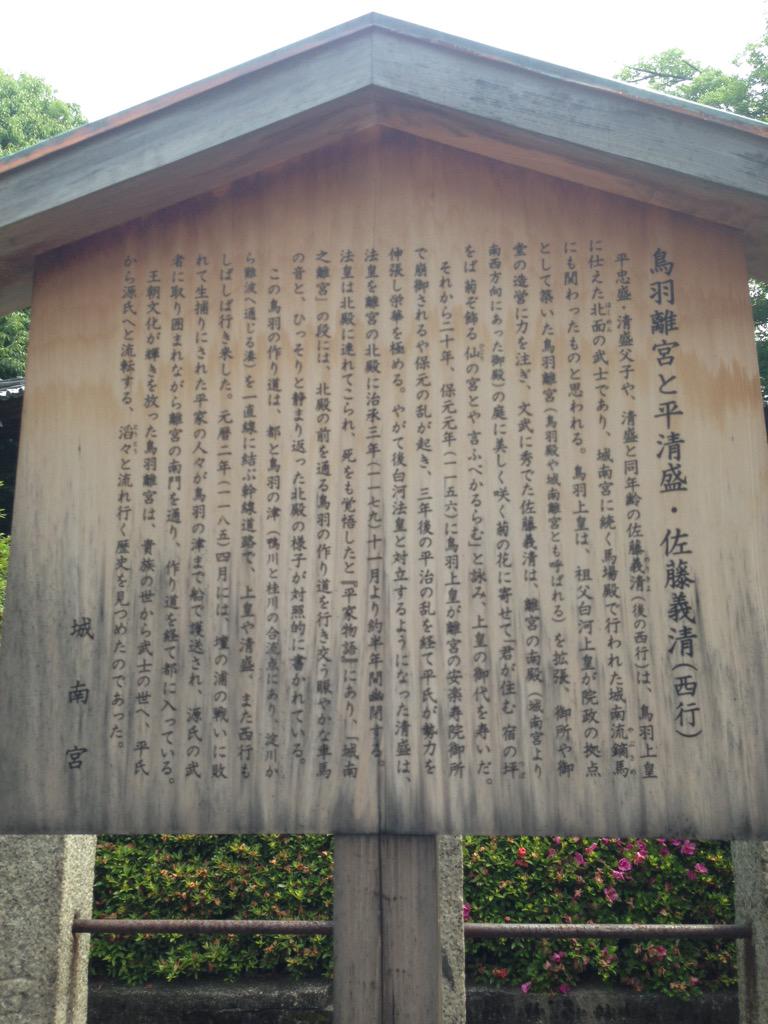 鳥羽離宮と平清盛・佐藤義清(西行)
平忠盛・清盛父子や、清盛と同年齢の佐藤義清(後の西行)は、鳥羽上皇
に仕えた北面の武士であり、城南宮に続く馬場殿で行われた城南流鏑馬
にも関わったものと思われる。鳥羽上皇は、祖父白河上皇が院政の拠点
として築いた鳥羽離宮(鳥羽殿や城南離宮とも呼ばれる)を拡張、御所や御
堂の造営に力を注ぎ、文武に秀でた佐藤義清は、離宮の南殿(城南宮より
南西方向にあった御殿)の庭に美しく咲く菊の花に寄せて「君が住む 宿の坪
をば 菊ぞ飾る 仙の宮とや 言ふべかるらむ」と詠み、上皇の御代を寿いだ。
それから二十年、保元元年(一一五六)に鳥羽上皇が離宮の安楽寿院御所
で崩御されるや保元の乱が起き、三年後の平治の乱を経て平氏が勢力を
伸張し栄華を極める。やがて後白河法皇と対立するようになった清盛は、
法皇を離宮の北殿に治承三年(一一七九)十一月より約半年間幽閉する。
法皇は北殿に連れてこられ、死をも覚悟したと『平家物語』にあり、「城南
之離宮」の段には、北殿の前を通る鳥羽の作り道を行き交う賑やかな車馬
の音と、ひっそりと静まり返った北殿の様子が対照的に書かれている。
この鳥羽の作り道は、都と鳥羽の津(鴨川と桂川の合流点にあり、淀川か
ら難波へ通じる湊)を一直線に結ぶ幹線道路で、上皇や清盛、また西行も
しばしば行き来した。元暦二年(一一八五)四月には、壇の浦の戦いに敗
れて生捕りにされた平家の人々が鳥羽の津まで船で護送され、源氏の武
者に取り囲まれながら離宮の南門を通り、作り道を経て都に入っている。
王朝文化が輝きを放った鳥羽離宮は、貴族の世から武士の世へ、平氏
から源氏へと流転する、滔々と流れ行く歴史を見つめたのであった。
城南宮